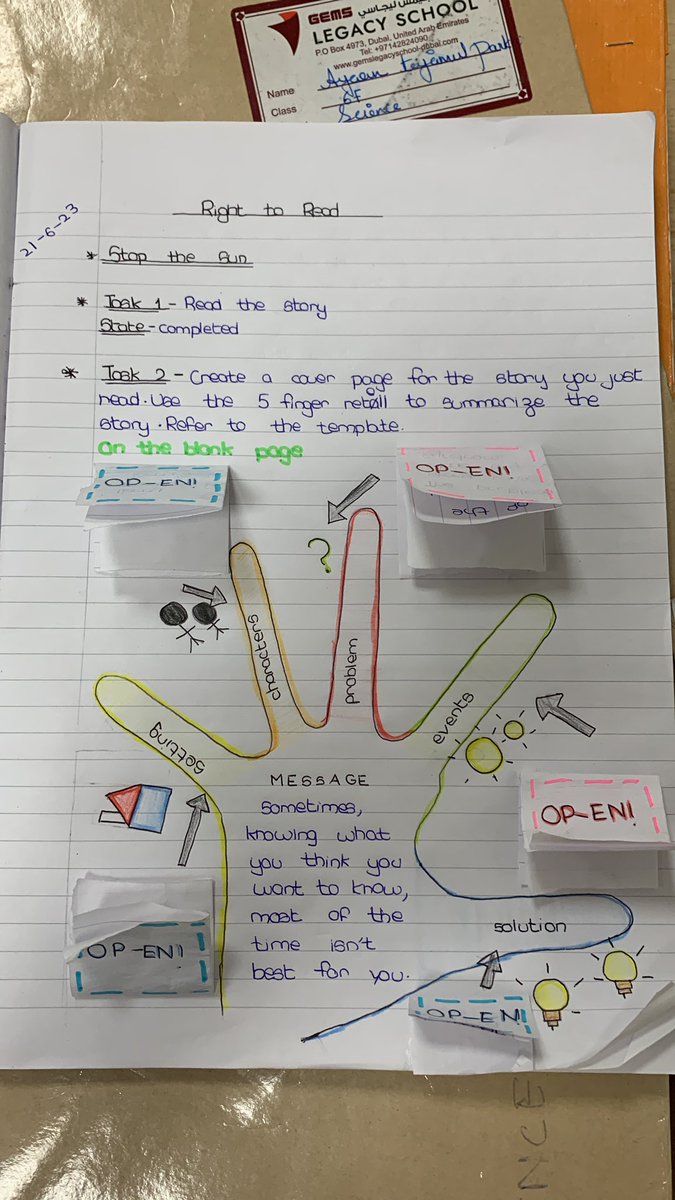 GEMS
LEGACY SCHOOL
P.O Box 4973, Dubai, United Arab Emirates
Tel: +97142824090
www.gemslegacyschool-dubai.com
Name
Class 6F
Science
21-6-23
Right to Read
* Stop the Sun
* Task 1 - Read the story
State - completed
* Task 2 - Create a cover page for the story you just
read. Use the 5 finger retell to summarize the
story. Refer to the template.
on the blank page
OP-EN!
OP-EN!
?
characters
problem
events
setting
MESSAGE
sometimes,
knowing what
you think you
want to know,
most of the
time isn't
best for you.
OP-EN!
OP-EN!
solution
OP-EN!
NCE